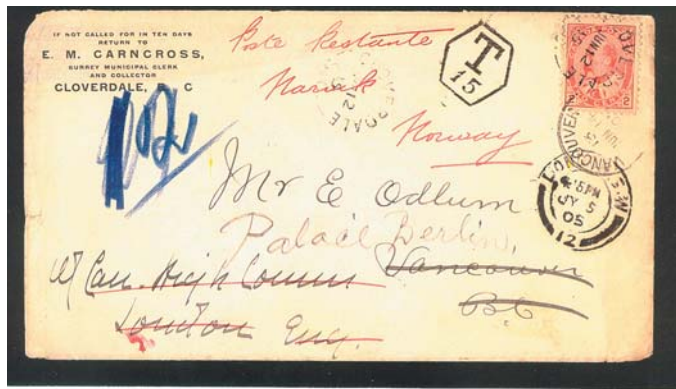 IF NOT CALLED FOR IN TEN DAYS
RETURN TO
E. M. CARNCROSS,
SURREY MUNICIPAL CLERK
AND COLLECTOR
CLOVERDALE, B. C
Poste Restante
Narvik
Norway
T
15
2
VANCOUVER
LONDON S.W
6.15PM
JY 5
05
12
Mr E Odlum
Palace Berlin,
Vancouver
BC
c/ Can. High Comm
London Eng.